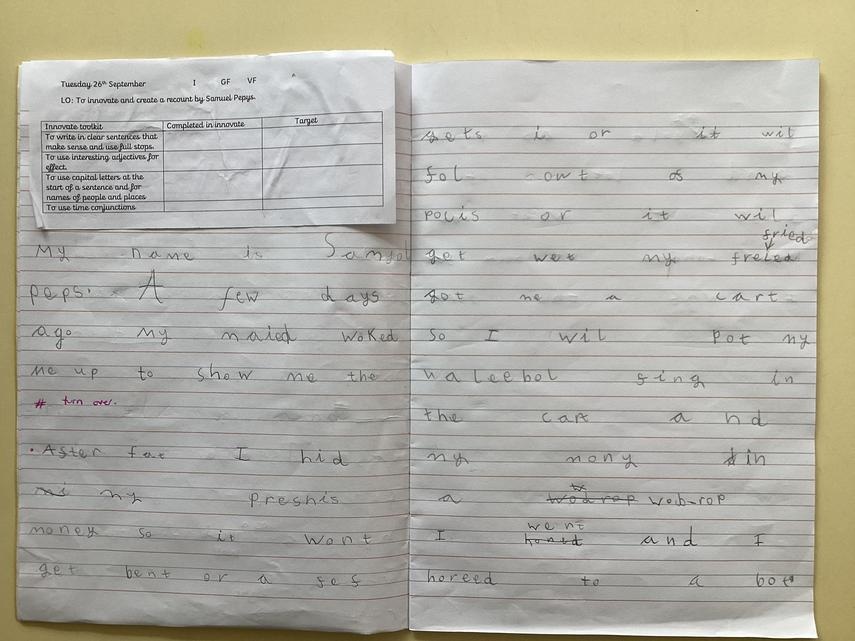 Tuesday 26th September I GF VF
LO: To innovate and create a recount by Samuel Pepys.
Innovate toolkit Completed in innovate Target
To write in clear sentences that
make sense and use full stops.
To use interesting adjectives for
effect.
To use capital letters at the
start of a sentence and for
names of people and places
To use time conjunctions
My name is Samyol
peps. A few days
ago my maied woked
me up to show me the
# turn over.
After fat I hid
my preshis
money so it wont
get bent or a
gets i or it wil
fol owt of my
pocis or it wil
fried
get wet my
got me a cart
so I wil pot my
valeebol fing in
the cart and
my mony in
a wob-rop
went
I and I
horeed to a bot